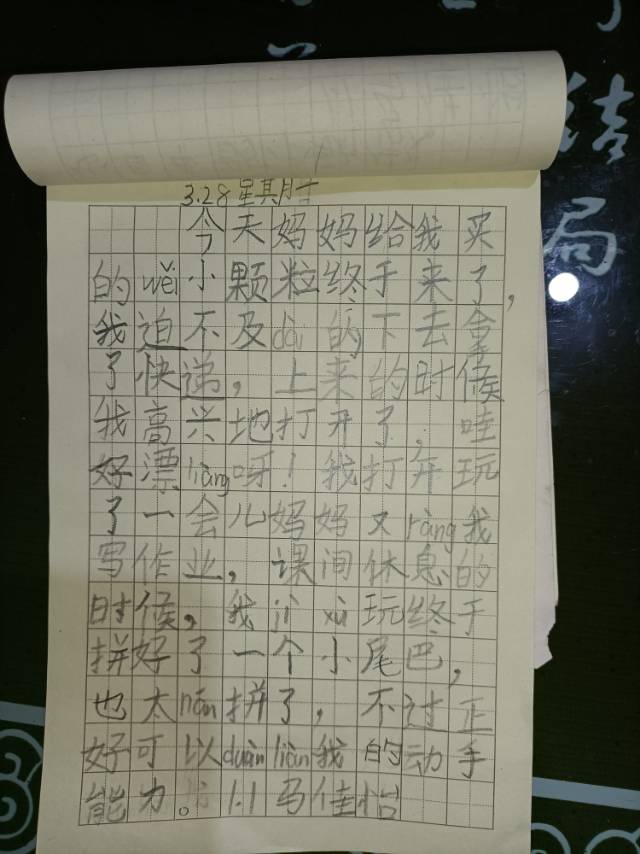 3.28星期
今天妈妈给我买
的wěi小颗粒终手来了,
我迫不及dài的下去拿
了快递,上来的时候
我高兴地打开了,哇
好漂liàng呀!我打开玩
了一会儿妈妈又ràng我
写作业,课间休息的
时候,我jì xù玩终手
拼好了一个小尾巴,
也太nán拼了,不过正
好可以duàn liàn我的动手
能力。1.1马佳怡
结
局